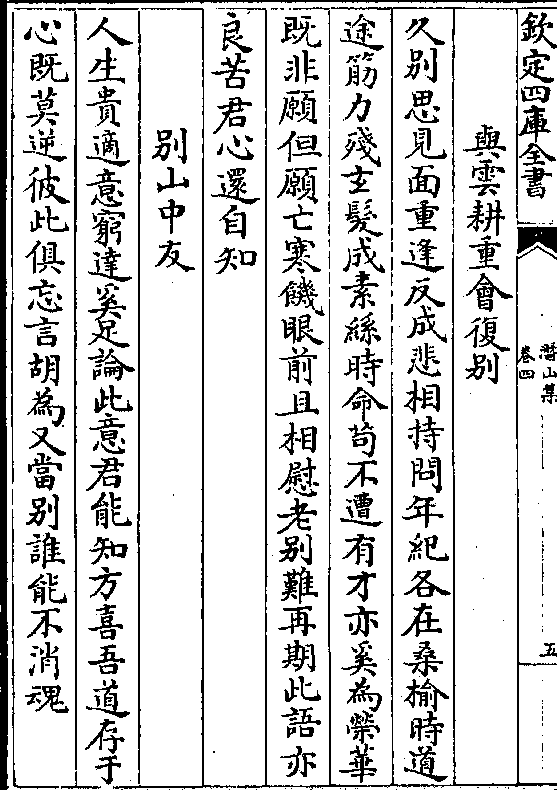 欽定四庫全書
潛山集
卷四
五
與雲耕重會復別
久別思見面重逢反成悲相持問年紀各在桑榆時道
途筋力殘玄髮成素絲時命苟不遭有才亦奚為榮華
既非願但願亡寒饑眼前且相慰老別難再期此語亦
良苦君心還自知
別山中友
人生貴適意窮達奚足論此意君能知方喜吾道存于
心既莫逆彼此俱忘言胡為又當別誰能不消魂